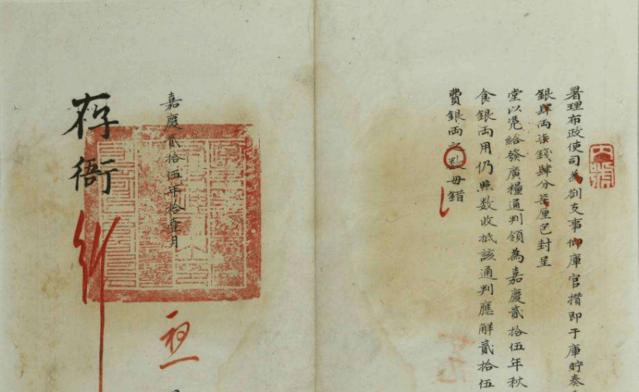 署理布政使司為劄支事仰庫官攢即于庫貯秦
銀肆両柒錢肆分
厘色封呈
堂以凭給發廣糧通判領為嘉慶貳拾伍年秋
食銀両用仍照数收抵該通判應解貳拾伍
費銀両之
毋錯
嘉慶貳拾伍年拾壹月
存衙